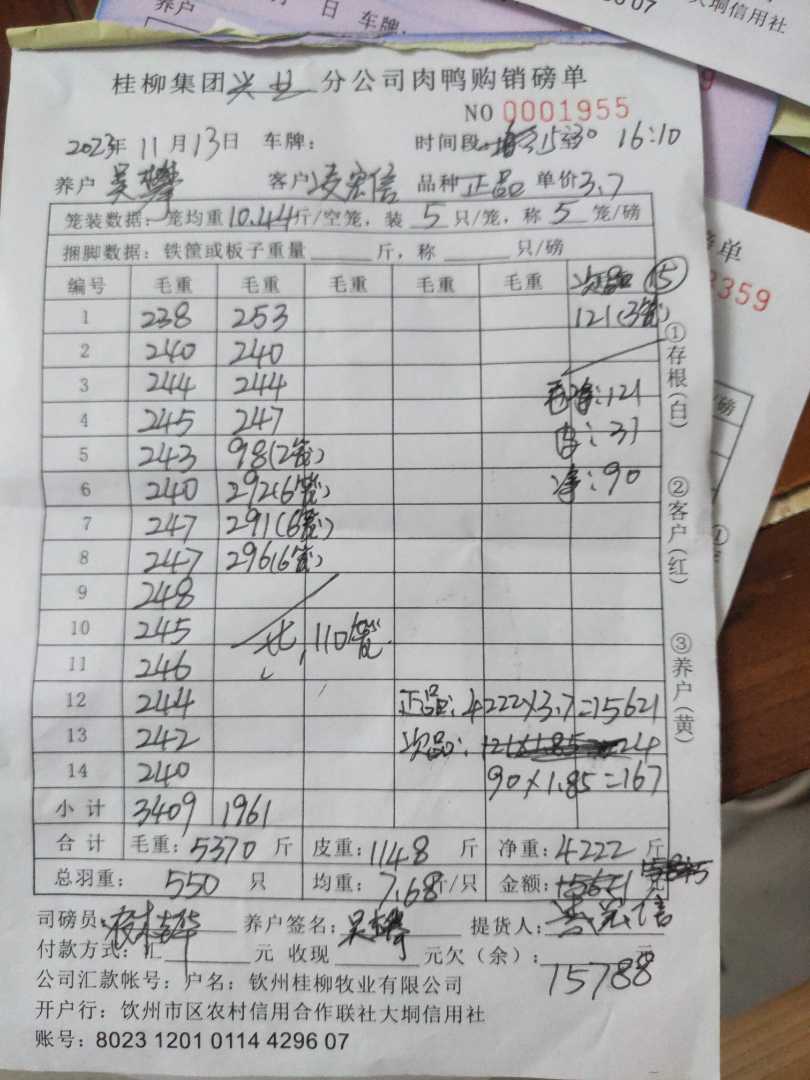 养户 日 车牌:
大垌信用社
桂柳集团兴业分公司肉鸭购销磅单
NO 0001955
2023年11月13日 车牌: 时间段: 15:30 16:10
养户 吴攀 客户 凌宏信 品种 正品 单价 3.7
笼装数据: 笼均重10.44斤/空笼, 装 5 只/笼, 称 5 笼/磅
捆脚数据: 铁筐或板子重量 斤, 称 只/磅
编号 毛重 毛重 毛重 毛重 毛重 次品 15
1 238 253 121(3笼)
2 240 240
3 244 244 毛:121
4 245 247 皮:31
5 243 98(2笼)
6 240 292(6笼) 净:90
7 247 291(6笼)
8 247 296(6笼)
9 248
10 245 共110笼
11 246
12 244 正品:4222×3.7=15621
13 242 次品:
14 240 90×1.85=167
小计 3409 1961
合计 毛重:5370斤 皮重:1148斤 净重:4222斤
总羽重: 550 只 均重: 7.68斤/只 金额: 元
司磅员: 养户签名: 吴攀 提货人:
付款方式: 汇 元 收现 元欠(余): 元
15788
公司汇款帐号: 户名: 钦州桂柳牧业有限公司
开户行: 钦州市区农村信用合作联社大垌信用社
账号: 8023 1201 0114 4296 07
①存根(白)
②客户(红)
③养户(黄)
磅单
3359